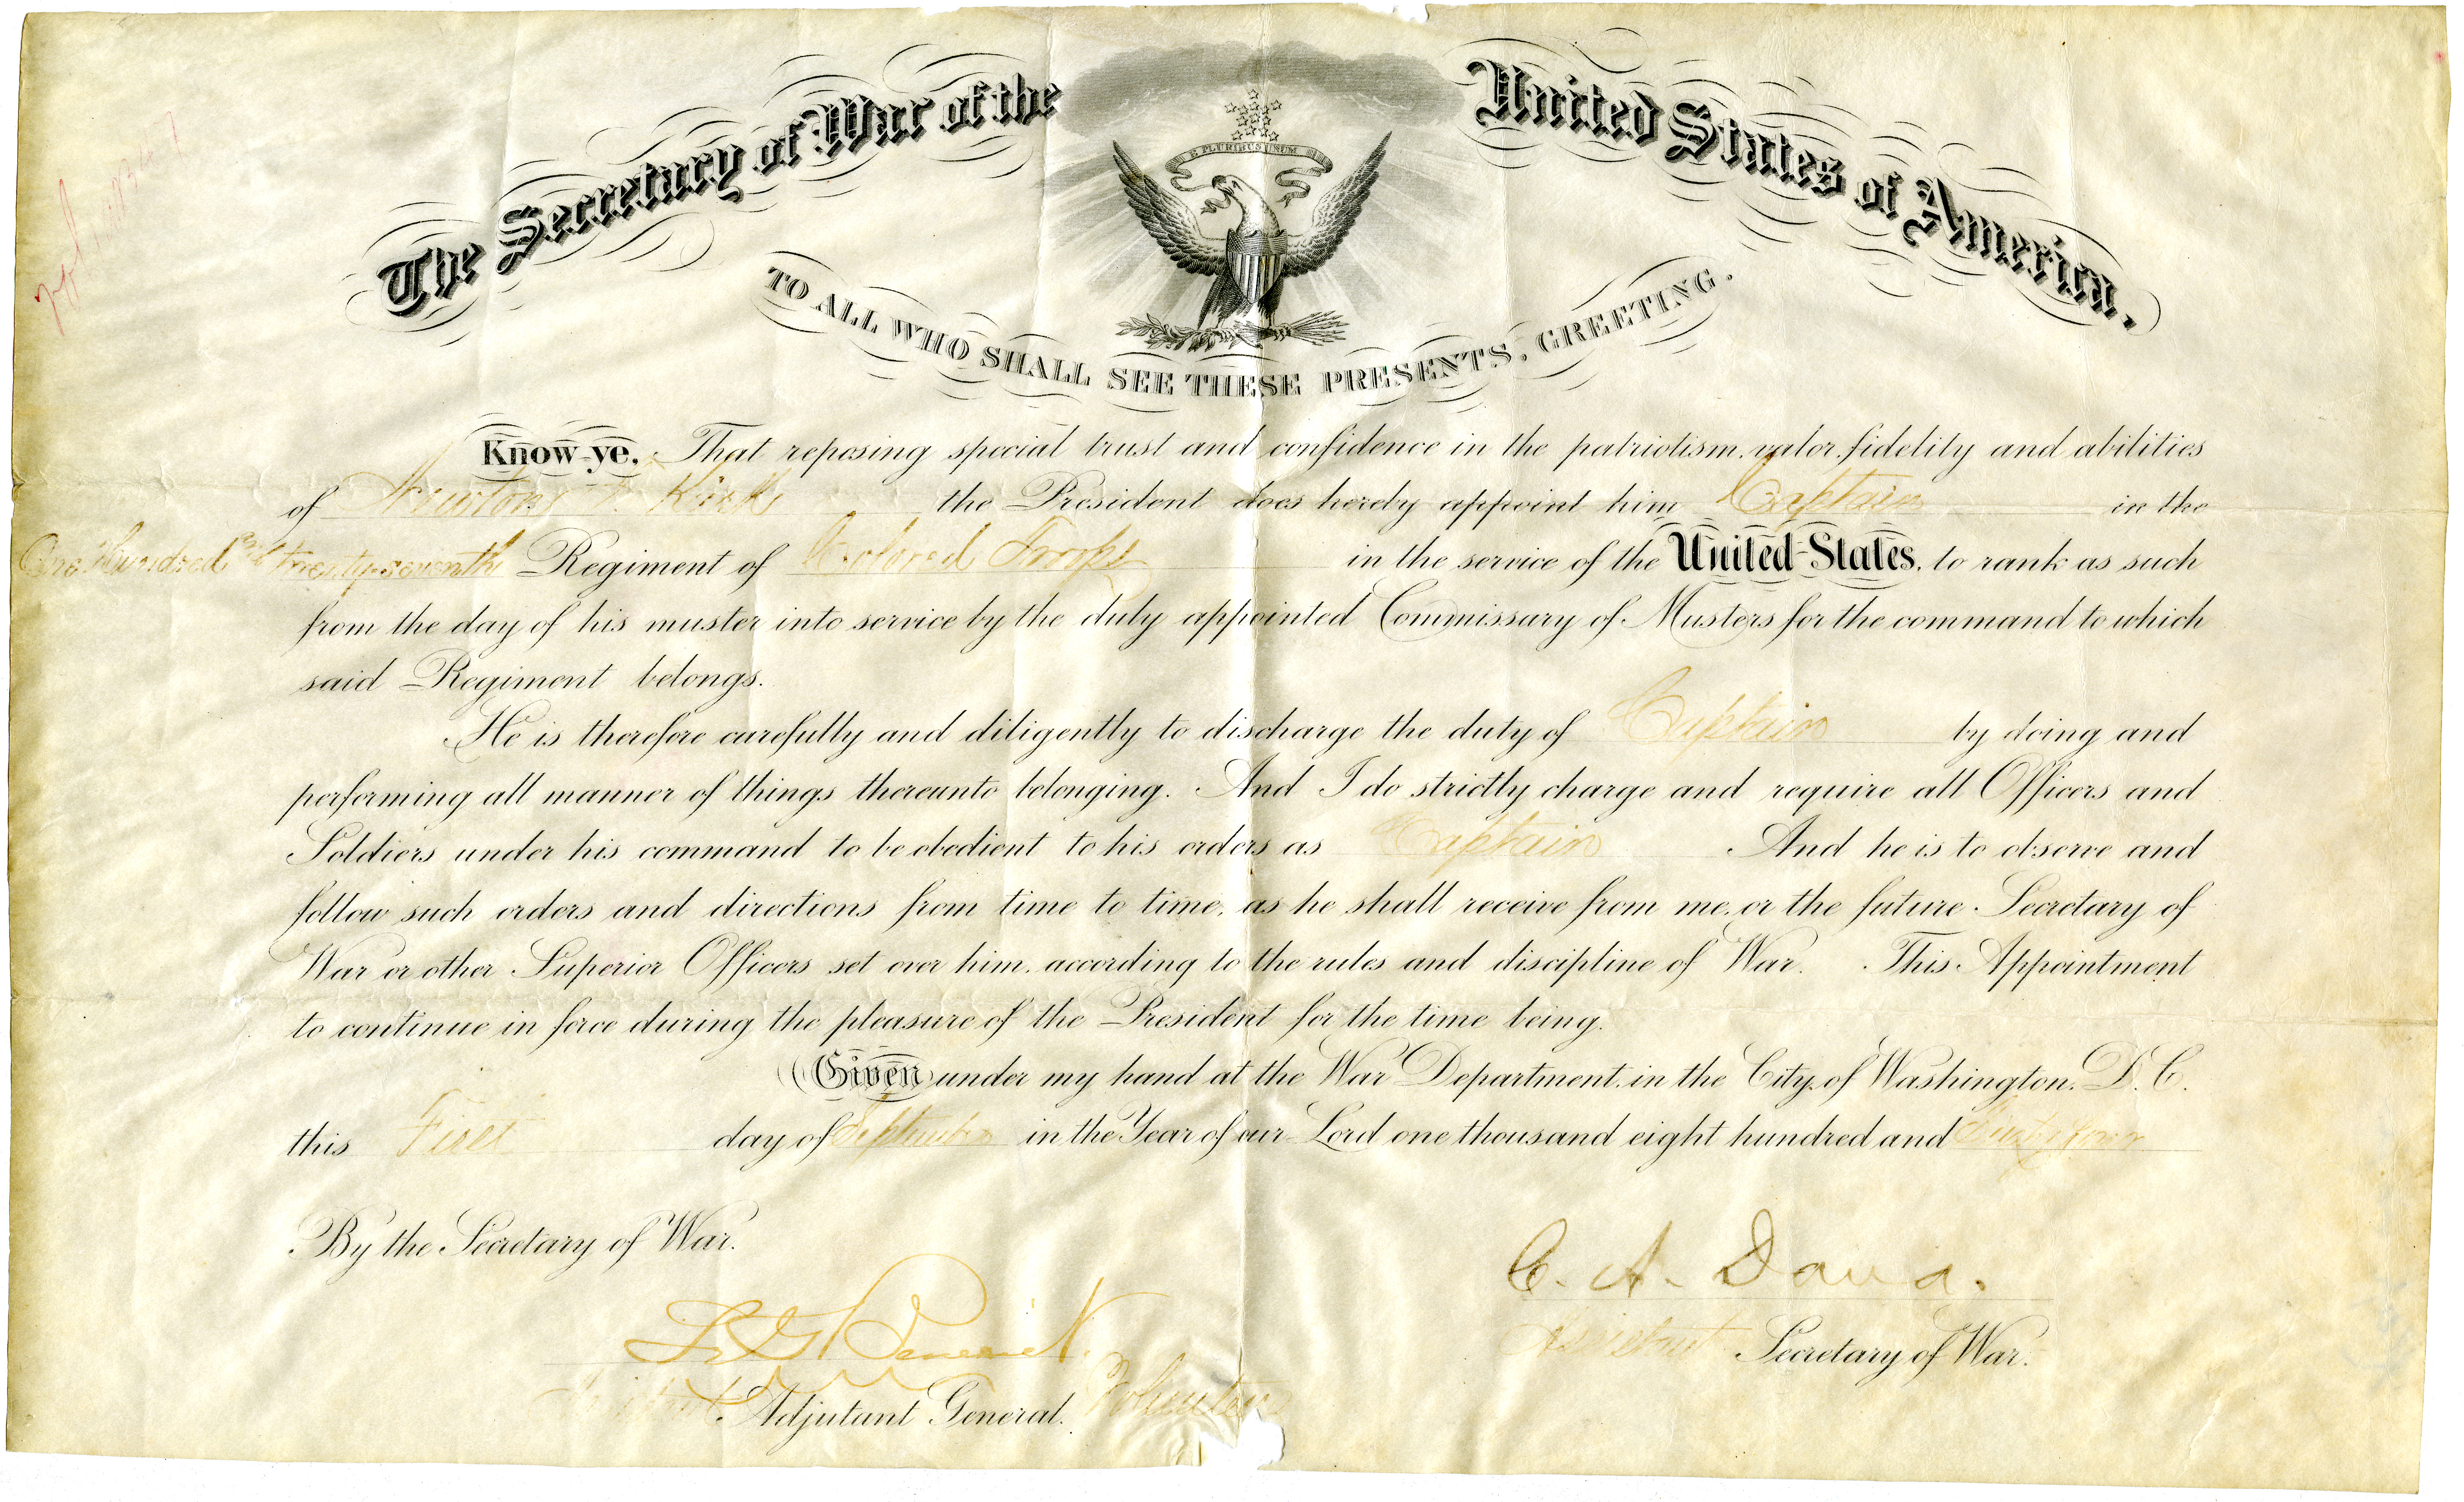 The Secretary of War of the United States of America.
E PLURIBUS UNUM
TO ALL WHO SHALL SEE THESE PRESENTS, GREETING.
Know ye, That reposing special trust and confidence in the patriotism, valor, fidelity and abilities
of Newton T. Kirk the President does hereby appoint him Captain in the
One Hundred and twenty-seventh Regiment of Colored Troops in the service of the United States, to rank as such
from the day of his muster into service by the duly appointed Commissary of Musters for the command to which
said Regiment belongs.
He is therefore carefully and diligently to discharge the duty of Captain by doing and
performing all manner of things thereunto belonging. And I do strictly charge and require all Officers and
Soldiers under his command to be obedient to his orders as Captain And he is to observe and
follow such orders and directions from time to time, as he shall receive from me, or the future Secretary of
War or other Superior Officers set over him, according to the rules and discipline of War. This Appointment
to continue in force during the pleasure of the President for the time being.
Given under my hand at the War Department, in the City of Washington, D.C.
this First day of September in the Year of our Lord one thousand eight hundred and Sixty four
By the Secretary of War.
C. A. Dana.
Assistant Secretary of War.
Adjutant General. Volunteers